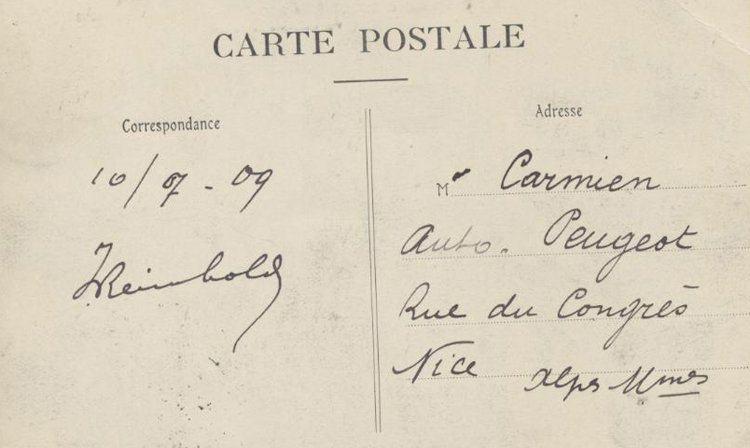 CARTE POSTALE
Correspondance
10/9 - 09
Adresse
Mr Carmien
Auto. Peugeot
Rue du Congrès
Nice Alpes Mmes